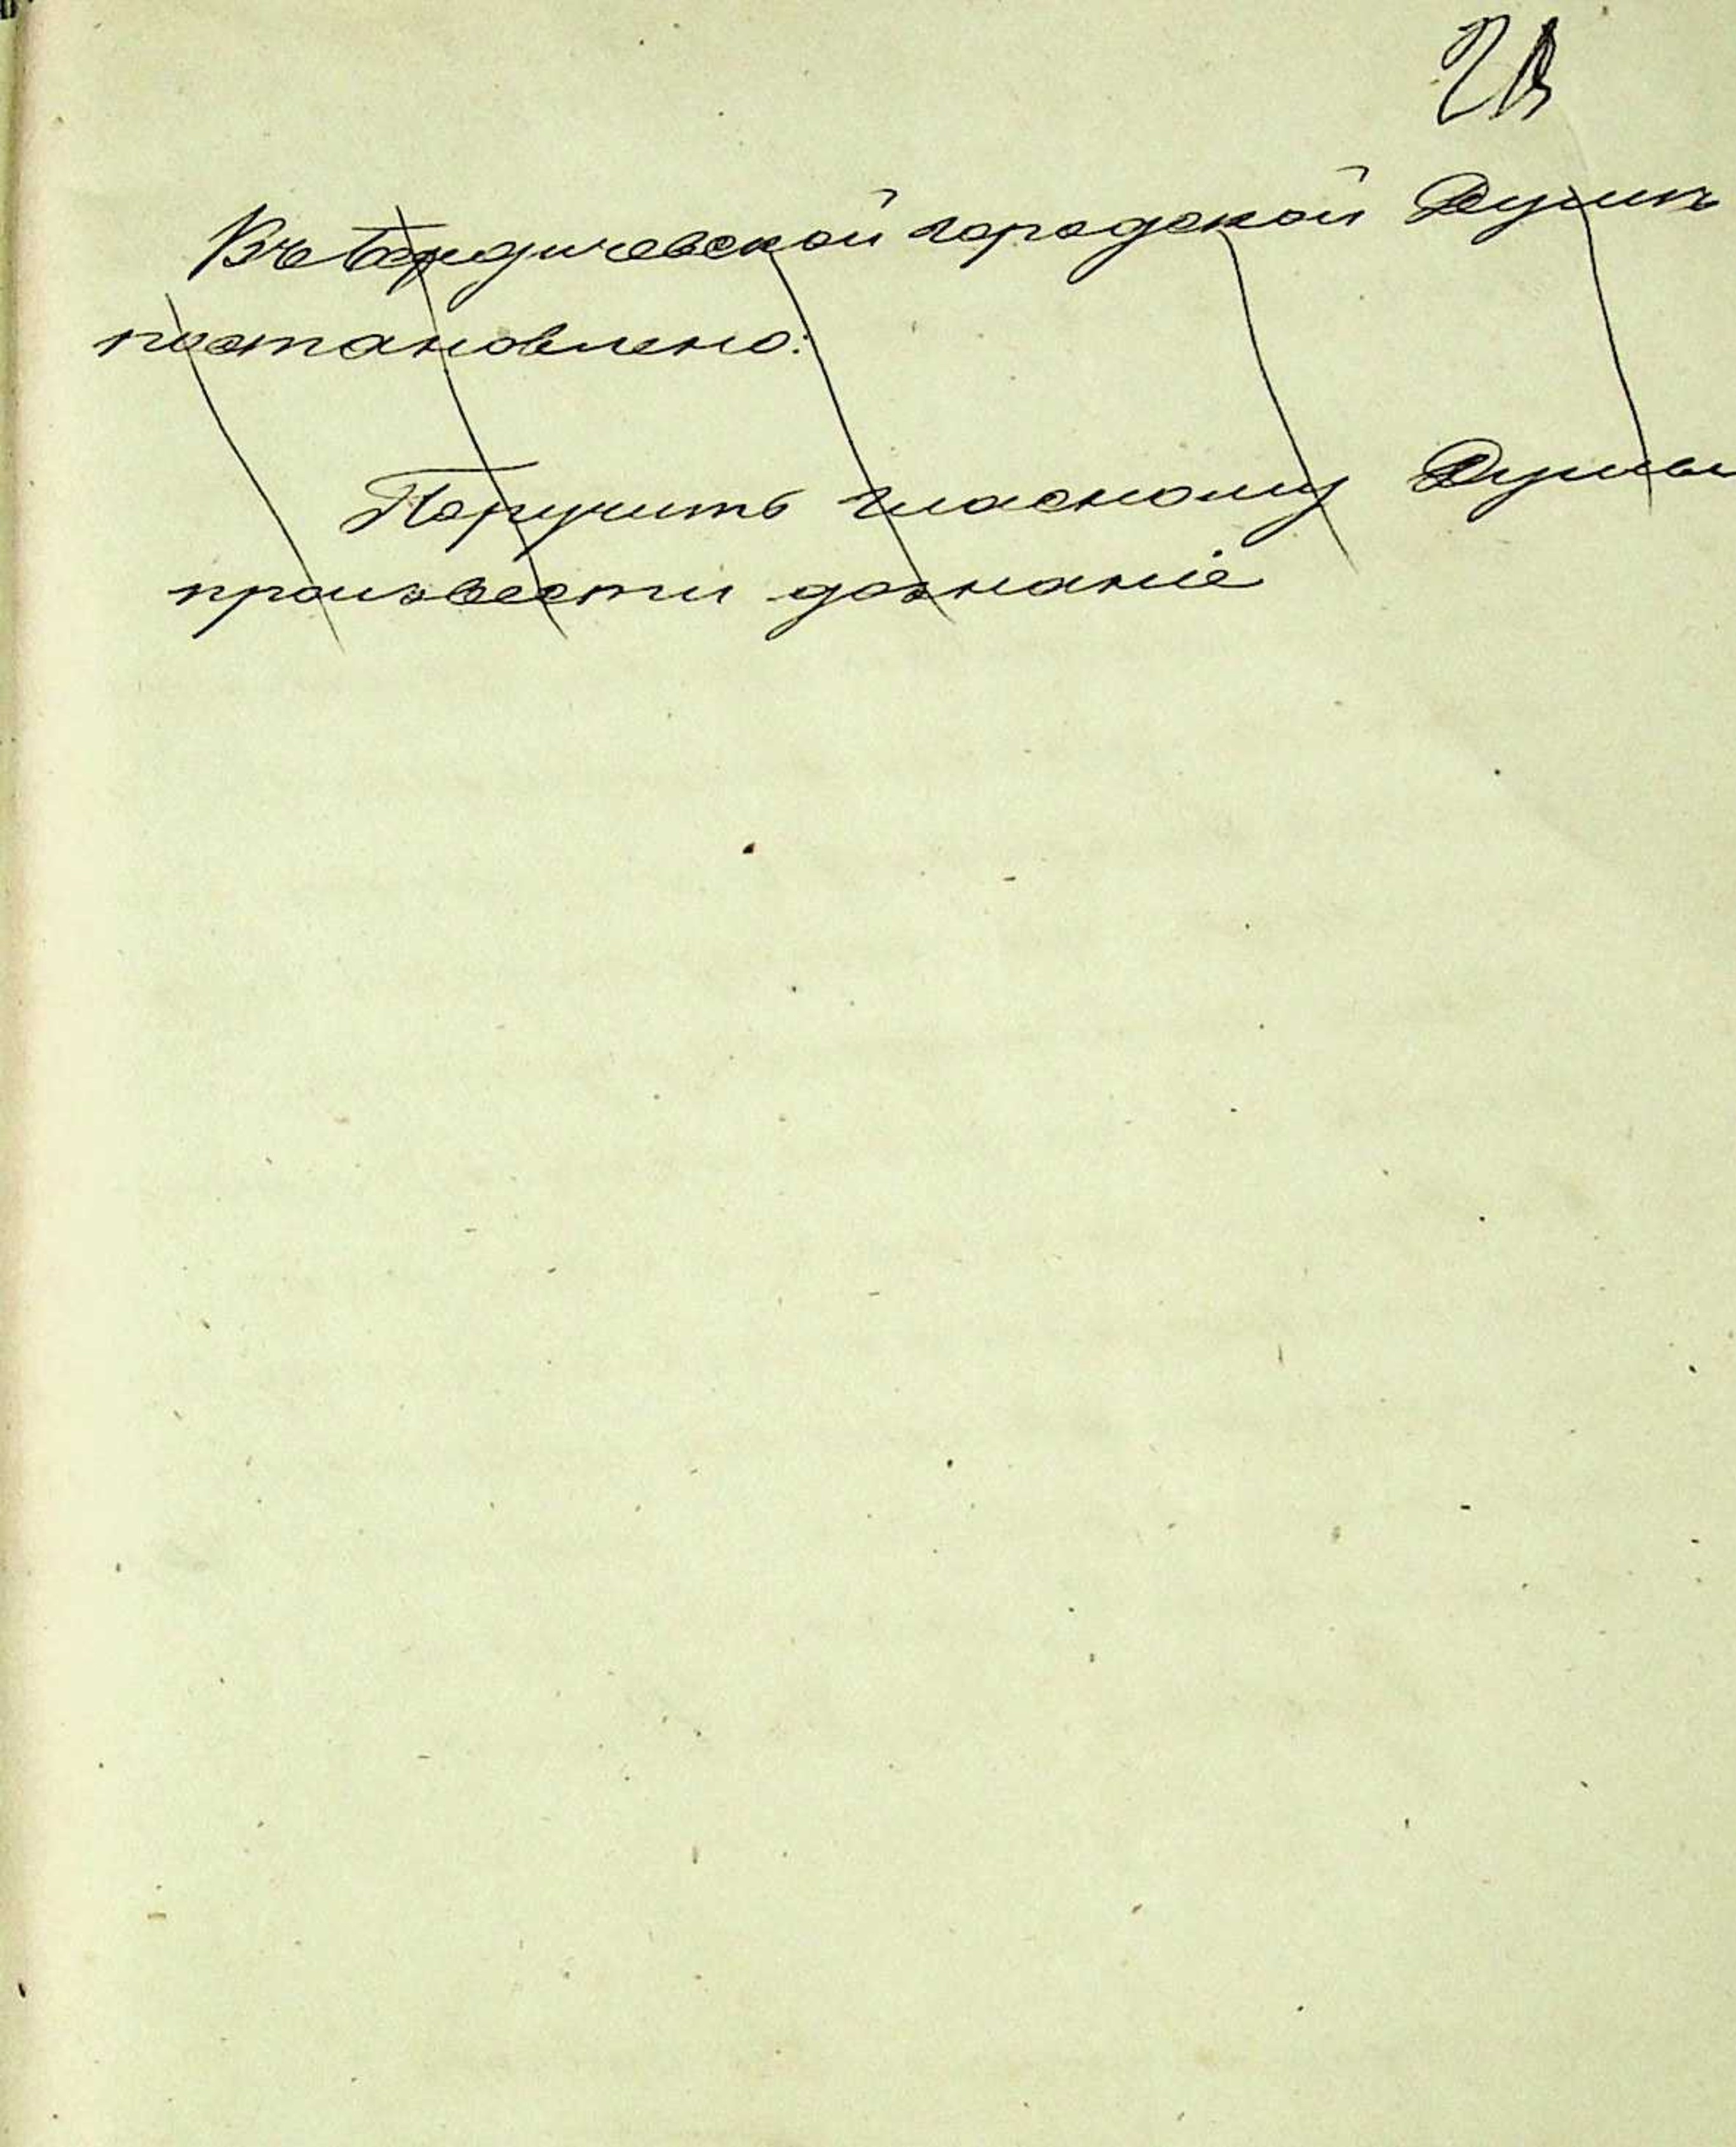 Въ Бердичевской городской Думѣ
постановлено:
Поручить гласному Думы
произвести дознаніе